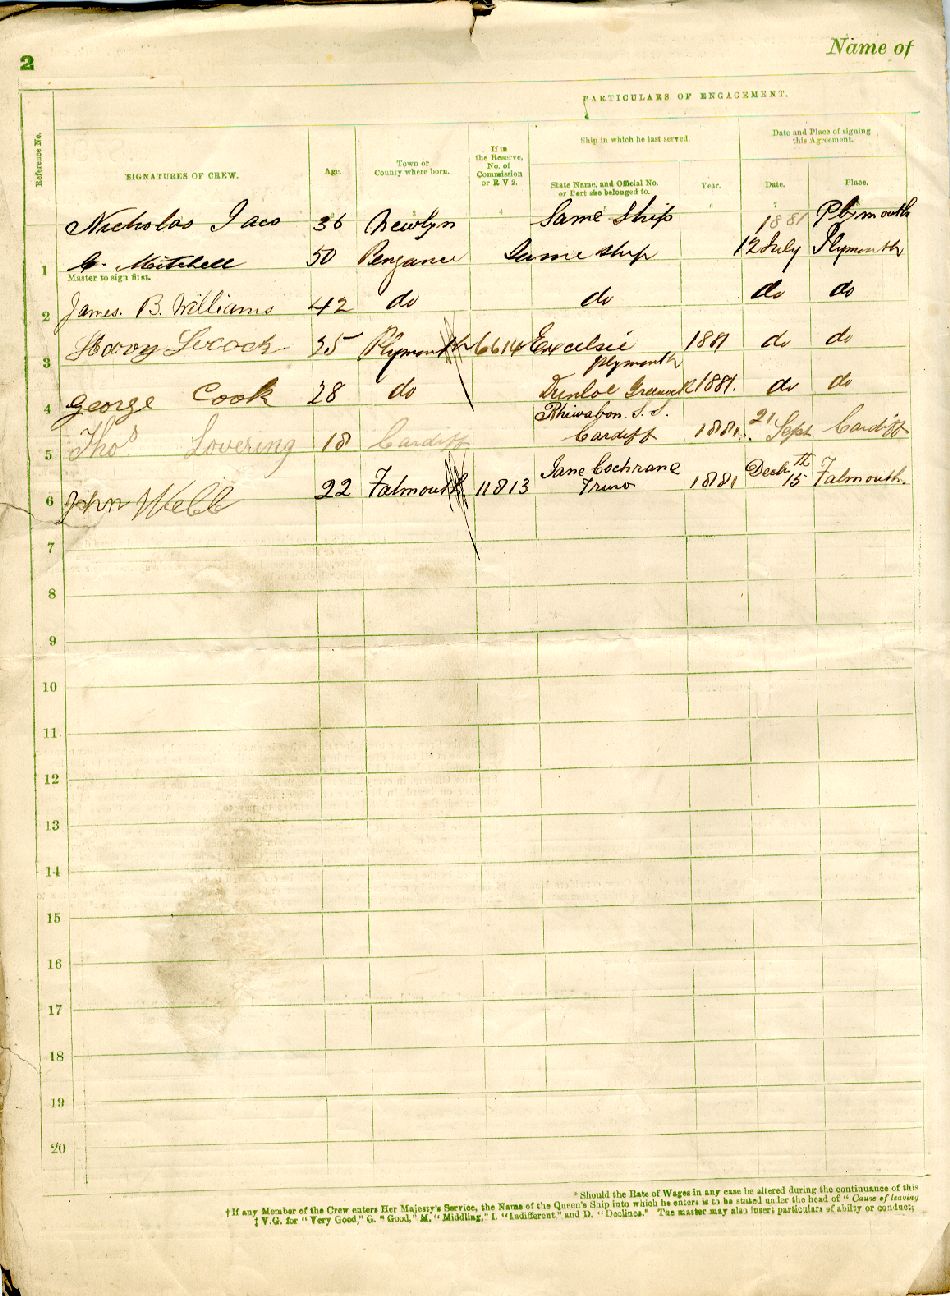 2
Name of
PARTICULARS OF ENGAGEMENT.
Reference No.
SIGNATURES OF CREW.
Age.
Town or County where born.
If in the Reserve, No. of Commission or R V 2.
Ship in which he last served.
State Name, and Official No. or Port she belonged to.
Year.
Date and Place of signing this Agreement.
Date.
Place.
Nicholas Jaco 36 Newlyn Same Ship 1881 Plymouth
1 Mitchell 50 Penzance Same ship 12 July Plymouth
Master to sign first.
2 James. B. Williams 42 do do do do
3 35 Plymouth 6614 Excelsie Plymouth 1881 do do
4 George Cook 28 do 1881. do do
5 Thos Lovering 18 Cardiff Rhiwabon S.S. Cardiff 1881. 21 Sept Cardiff
6 John Webb 22 Falmouth 11813 Jane Cochrane Truro 1881 Decr 15th Falmouth.
7
8
9
10
11
12
13
14
15
16
17
18
19
20
* Should the Rate of Wages in any case be altered during the continuance of this
† If any Member of the Crew enters Her Majesty's Service, the Name of the Queen's Ship into which he enters is to be stated under the head of "Cause of leaving
‡ V.G. for "Very Good," G. "Good," M. "Middling," I. "Indifferent," and D. "Declines." The master may also insert particulars of ability or conduct;